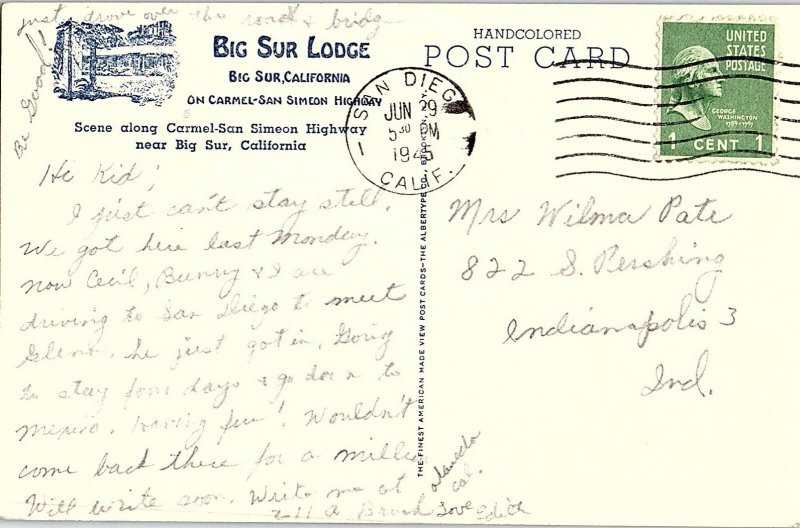 just drove over this road & bridge
Be Good!
BIG SUR LODGE
BIG SUR, CALIFORNIA
ON CARMEL-SAN SIMEON HIGHWAY
Scene along Carmel-San Simeon Highway
near Big Sur, California
Hi Kid;
I just can't stay still.
We got here last Monday.
now Cecil, Bunny & I are
driving to San Diego to meet
Glenn. he just got in. Going
to stay four days & go down to
mexico. Having fun! Wouldn't
come back there for a million
Will write soon. Write me at
211 A
Alameda
Cal.
Love Edith
HANDCOLORED
POST CARD
SAN DIEGO
JUN 29
5 30 PM
1945
CALIF.
UNITED
STATES
POSTAGE
GEORGE
WASHINGTON
1789-1797
1 CENT 1
THE FINEST AMERICAN MADE VIEW POST CARDS—THE ALBERTYPE CO., BROOKLYN, N.Y.
Mrs Wilma Pate
822 S. Pershing
Indianapolis 3
Ind.